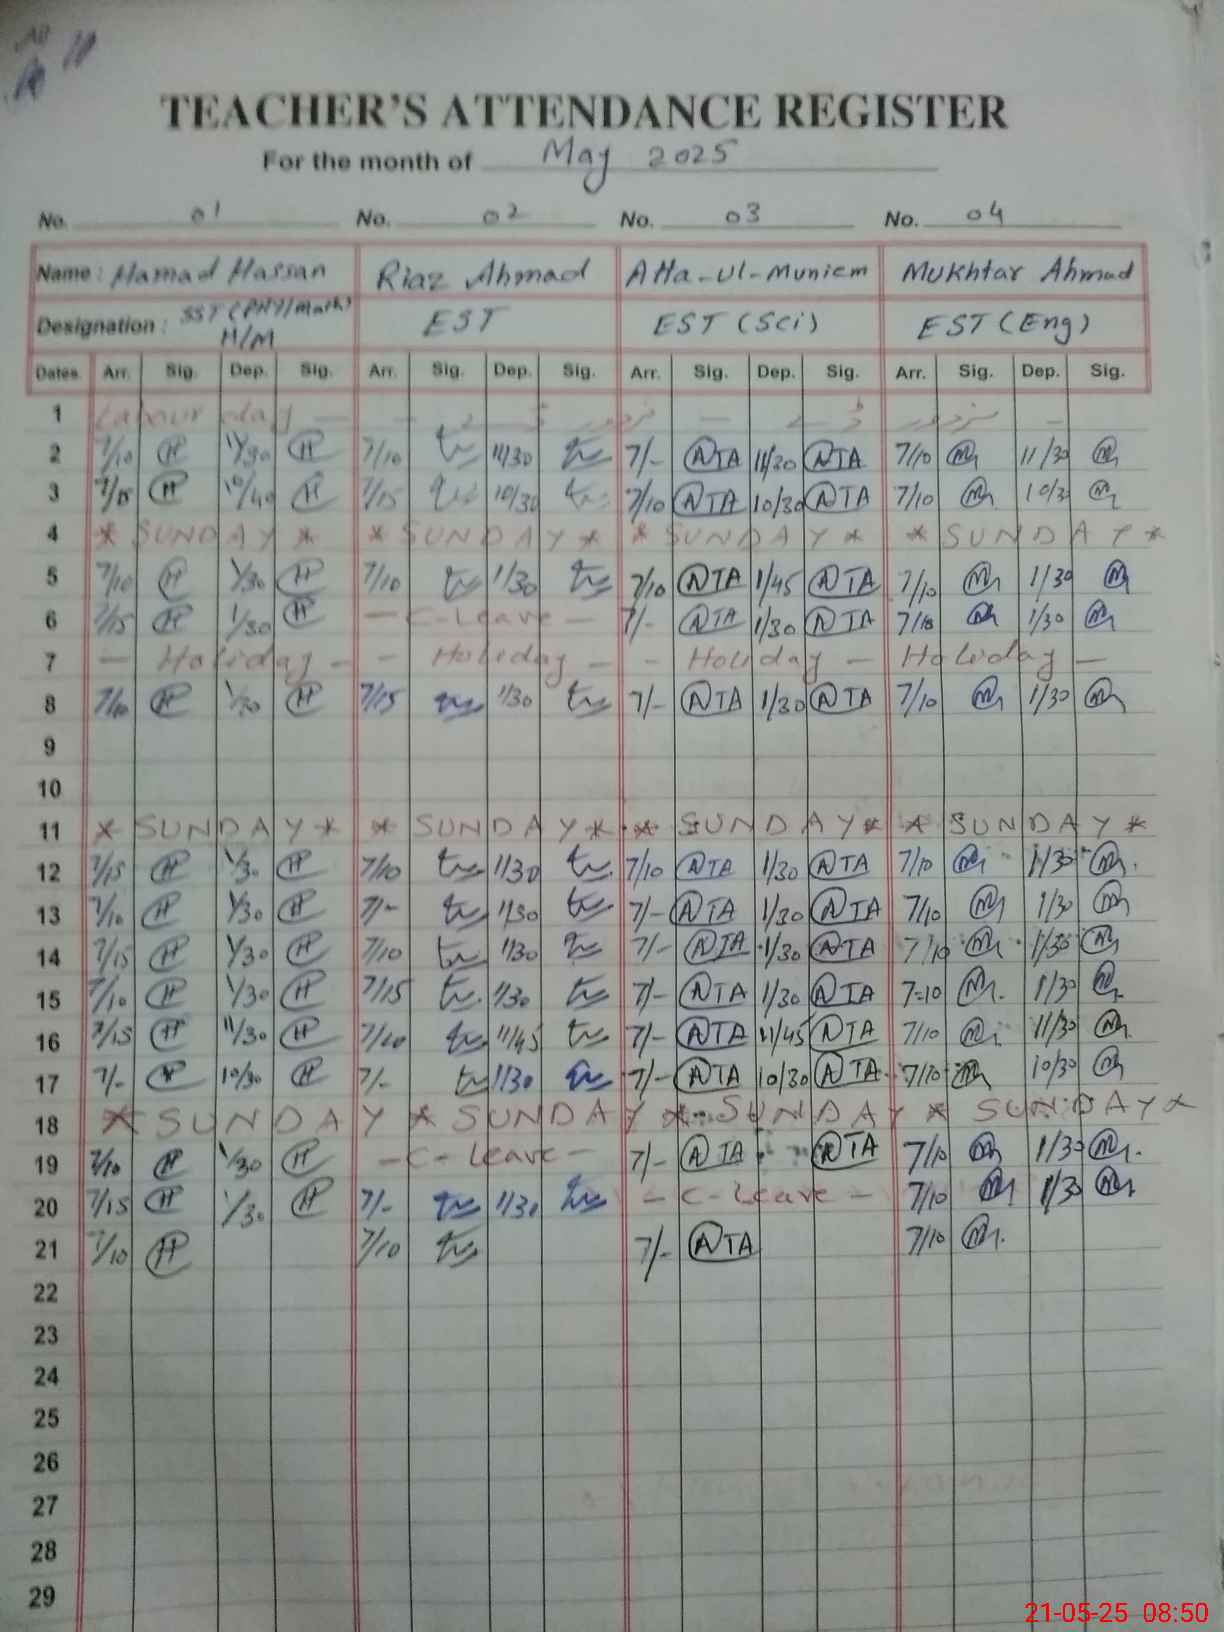 TEACHER'S ATTENDANCE REGISTER
For the month of May 2025
No. 01 No. 02 No. 03 No. 04
Name : Hamad Hassan Riaz Ahmad Atta-ul-Muniem Mukhtar Ahmad
Designation : SST (PHY/Math) H/M EST EST (Sci) EST (Eng)
Dates Arr. Sig. Dep. Sig. Arr. Sig. Dep. Sig. Arr. Sig. Dep. Sig. Arr. Sig. Dep. Sig.
1 Labour day
2 7/10 H 11/30 H 7/10 11/30 7/- ATA 11/30 ATA 7/10 M 11/30 M
3 7/15 H 10/40 H 7/15 10/30 7/10 ATA 10/30 ATA 7/10 M 10/3 M
4 * SUNDAY * * SUNDAY * * SUNDAY * * SUNDAY *
5 7/10 H 1/30 H 7/10 1/30 7/10 ATA 1/45 ATA 7/10 M 1/30 M
6 7/15 H 1/30 H - C-Leave - 7/- ATA 1/30 ATA 7/10 M 1/30 M
7 - Holiday - - Holiday - - Holiday - Holiday -
8 7/10 H 1/30 H 7/15 1/30 7/- ATA 1/30 ATA 7/10 M 1/30 M
9
10
11 * SUNDAY * * SUNDAY * * SUNDAY * * SUNDAY *
12 7/15 H 1/30 H 7/10 1/30 7/10 ATA 1/30 ATA 7/10 M 1/30 M
13 7/10 H 1/30 H 7/- 1/30 7/- ATA 1/30 ATA 7/10 M 1/30 M
14 7/15 H 1/30 H 7/10 1/30 7/- ATA 1/30 ATA 7/10 M 1/30 M
15 7/10 H 1/30 H 7/15 1/30 7/- ATA 1/30 ATA 7=10 M 1/30 M
16 7/15 H 11/30 H 7/10 11/45 7/- ATA 11/45 ATA 7/10 M 11/30 M
17 7/- H 10/30 H 7/- 1130 7/- ATA 10/30 ATA 7/10 M 10/30 M
18 * SUNDAY * SUNDAY * SUNDAY * SUNDAY *
19 7/10 H 1/30 H - C-Leave - 7/- ATA ATA 7/10 M 1/30 M
20 7/15 H 1/30 H 7/- 1/30 - C-Leave - 7/10 M 1/30 M
21 7/10 H 7/10 7/- ATA 7/10 M
22
23
24
25
26
27
28
29
21-05-25 08:50